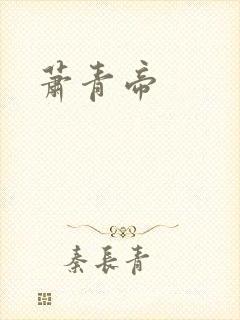 萧青帝
秦長青